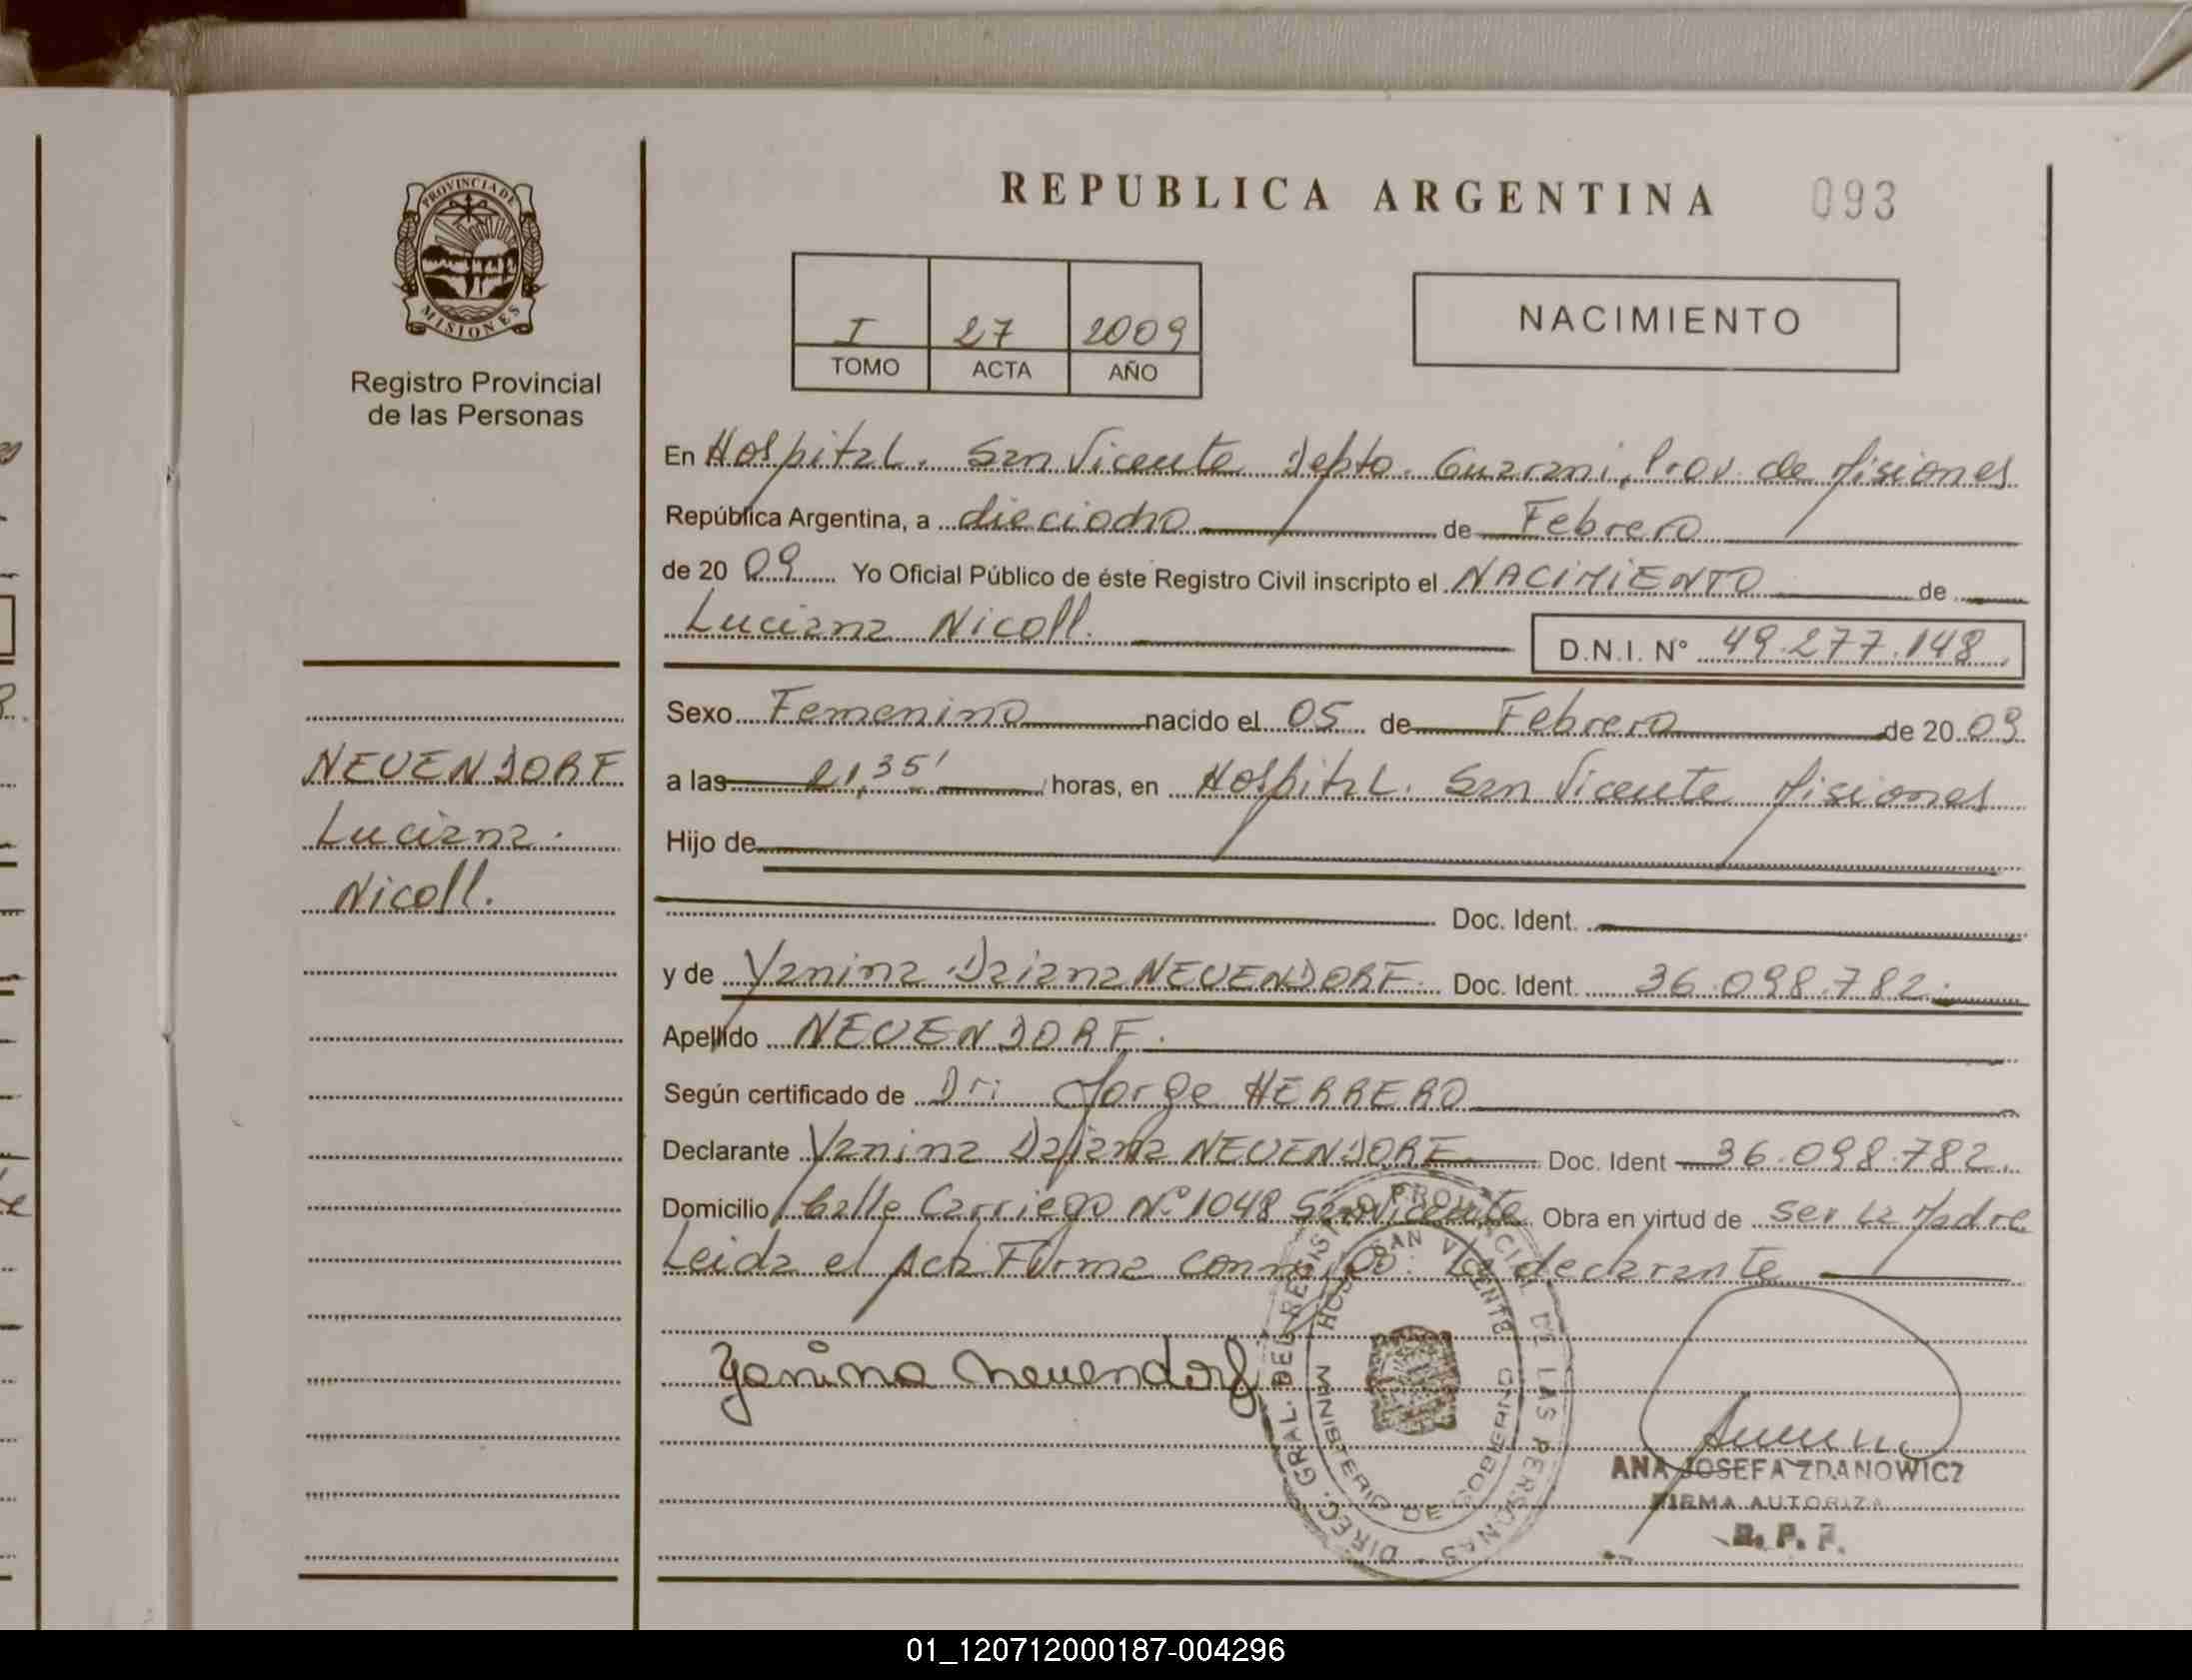 REPUBLICA ARGENTINA 093
PROVINCIA DE
MISIONES
Registro Provincial
de las Personas
I 27 2009
TOMO ACTA AÑO
NACIMIENTO
En Hospital. San Vicente Depto. Guarani, Prov. de Misiones
República Argentina, a dieciocho de Febrero
de 20 09 Yo Oficial Público de éste Registro Civil inscripto el NACIMIENTO de
Luciana Nicoll.
D.N.I. N° 49.277.148
Sexo Femenino nacido el 05 de Febrero de 20 09
NEUENDORF
Luciana
Nicoll.
a las 21,35' horas, en Hospital. San Vicente Misiones
Hijo de
Doc. Ident.
y de Yanina Daiana NEUENDORF. Doc. Ident. 36.098.782.
Apellido NEUENDORF.
Según certificado de Dr: Jorge HERRERO
Declarante Yanina Daiana NEUENDORF Doc. Ident 36.098.782.
Domicilio Calle Carriego N° 1048 San Vicente Obra en virtud de ser la Madre
Leida el Acta Firma conmigo: La declarante
Yanina Neuendorf
DIREC. GRAL. DEL REGISTRO PROVINCIAL DE LAS PERSONAS
HOSP. SAN VICENTE
MINISTERIO DE GOBIERNO
ANA JOSEFA ZDANOWICZ
FIRMA AUTORIZA
R. P. P.
01_120712000187-004296